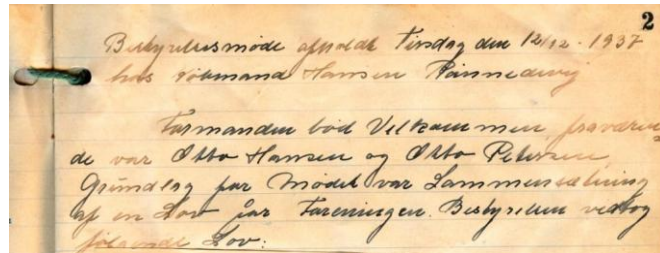 2
Bestyrelsesmøde afholdt Tirsdag den 12/12 - 1937
hos Købmand Hansen Rønnedevig
Formanden bød Velkommen, fraværen-
de var Otto Hansen og Otto Petersen,
Grundlag for Mødet var Sammensætning
af en Lov for Foreningen. Bestyrelsen vedtog
følgende Lov: